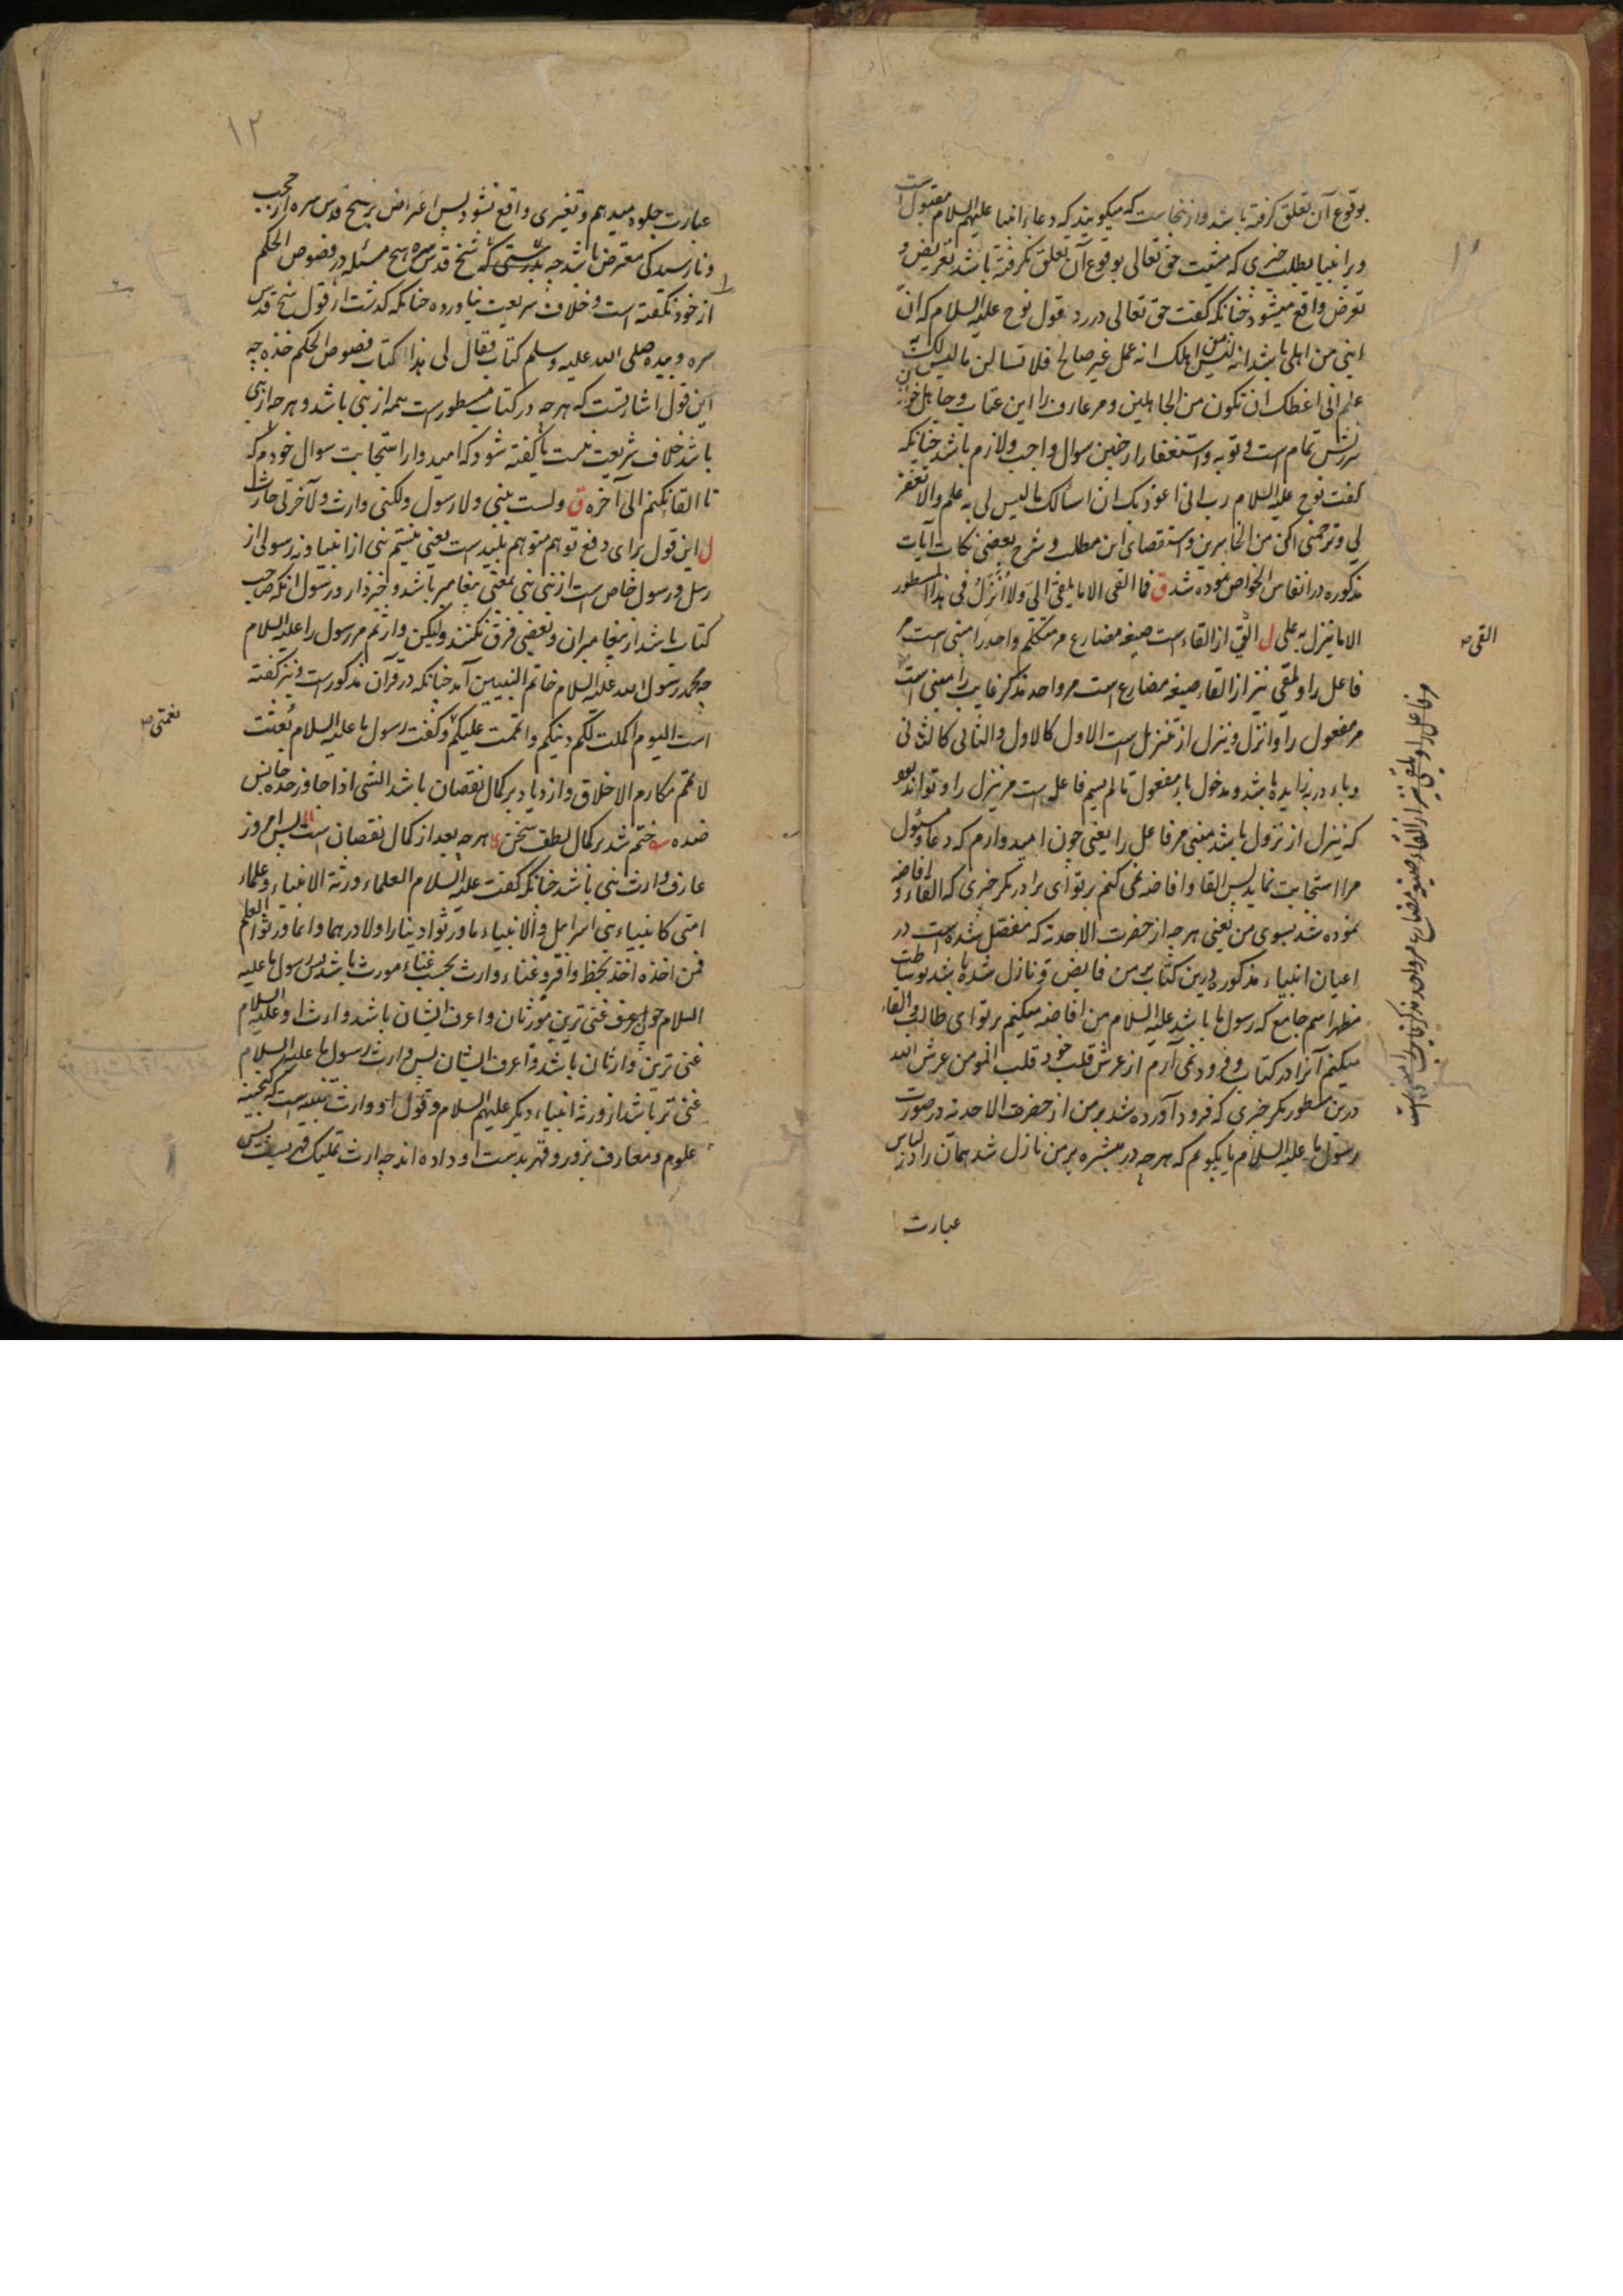 بوقوع آن تعلق گرفته باشد و ازینجاست که میگویند که دعاء انبیا علیهم السلام مقبول است
و بر انبیا بطلب چیزی که مشیت حق تعالی بوقوع آن تعلق نگرفته باشد تعریض و
تعرض واقع میشود چنانکه گفت حق تعالی در رد قول نوح علیه السلام که ان
ابنی من اهلی باشد انه لیس من اهلک انه عمل غیر صالح فلا تسالن ما لیس لک به
علم انی اعظک ان تکون من الجاهلین و مر عارف را این عتاب و جاهل خواندن
سرزنش تمام است و توبه و استغفار از چنین سوال واجب و لازم باشد چنانکه
گفت نوح علیه السلام رب انی اعوذ بک ان اسألک ما لیس لی به علم والا تغفر
لی و ترحمنی اکن من الخاسرین و استقصای این مطلب و شرح بعضی نکات آیات
مذکوره در انفاس الخواص نموده شد ق فما القی الا ما یلقی الی ولا انزل فی هذا المسطور
الا ما ینزل به علی ل القی از القاء است صیغه مضارع مر متکلم واحد را مبنی است مر
فاعل را و یلقی نیز از القاء صیغه مضارع است مر واحد مذکر غایب را مبنی است
مر مفعول را و انزل و ینزل از تنزیل است الاول کالاول والثانی کالثانی
و باء در به زایده باشد و مدخول با مفعول ما لم یسم فاعله است مر ینزل را و تواند بود
که ینزل از نزول باشد مبنی مر فاعل را یعنی چون امیدوارم که دعا و مسئول
مرا استجابت نماید پس القا و افاضه نمی کنم بر تو ای برادر مگر چیزی که القاء و افاضه
نموده شد بسوی من یعنی هر چه از حضرت الاحدیة که مفصل شده است در
اعیان انبیاء مذکور درین کتاب بر من فایض و نازل شده باشد بوساطت
مظهر اسم جامع که رسول ما باشد علیه السلام من افاضه میکنم بر تو ای طالب و القاء
میکنم آنرا در کتاب و فرود نمی آرم از عرش قلب خود قلب المومن عرش الله
درین مسطور مگر چیزی که فرود آورده شد بر من از حضرت الاحدیة در صورت
رسول ما علیه السلام یا بگویم که هر چه در مبشره بر من نازل شد همان را در لباس
عبارت
القی ص
۱۲
عبارت جلوه میدهم و تغییری واقع نشود پس اعتراض بر شیخ قدس سره از حجب
و نارسیدگی معترض باشد چه بدرستی که شیخ قدس سره هیچ مسئله در فصوص الحکم
از خود نگفته است و خلاف شریعت نیاورده چنانکه گذشت از قول شیخ قدس
سره و بیده صلی الله علیه وسلم کتاب فقال لی هذا کتاب فصوص الحکم خذه چه
این قول اشارتست که هر چه در کتاب مسطور است همه از نبی باشد و هر چه از نبی
باشد خلاف شریعت نیست یا گفته شود که امیدوار استجابت سوال خودم که
تا القا نکنم الی آخره ق ولست بنبی ولا رسول ولکنی وارث ولآخرتی حارث
ل این قول برای دفع توهم متوهم بلید است یعنی نیستم نبی از انبیا و نه رسولی از
رسل و رسول خاص است از نبی نبی بمعنی پیغامبر باشد و خبردار و رسول آنکه صاحب
کتاب باشد از پیغامبران و بعضی فرق نکنند ولیکن وارثم مر رسول را علیه السلام
چه محمد رسول الله علیه السلام خاتم النبیین آمد چنانکه در قرآن مذکور است و نیز گفته
است الیوم اکملت لکم دینکم و اتممت علیکم و گفت رسول ما علیه السلام بعثت
لاتمم مکارم الاخلاق و ازدیاد بر کمال نقصان باشد الشی اذا جاوز حده جانس
ضده ختم شد بر کمال لطف سخن هر چه بعد از کمال نقصان است پس امروز
عارف وارث نبی باشد چنانکه گفت علیه السلام العلماء ورثة الانبیاء و علماء
امتی کانبیاء بنی اسرائیل و الانبیاء ما ورثوا دینارا ولا درهما وانما ورثوا العلم
فمن اخذه اخذ بحظ وافر و غناء وارث بحسب غناء مورث باشد پس رسول ما علیه
السلام چون غنی ترین مورثان و اعرف ایشان باشد وارث او علیه السلام
غنی ترین وارثان باشد و اعرف ایشان پس وارث رسول ما علیه السلام
غنی تر باشد از ورثه انبیاء دیگر علیهم السلام و قول او وارث است که گنجینه
علوم و معارف بزور و قهر بدست او داده اند چه ارث تملیک قهریست پس
نعمتی ص